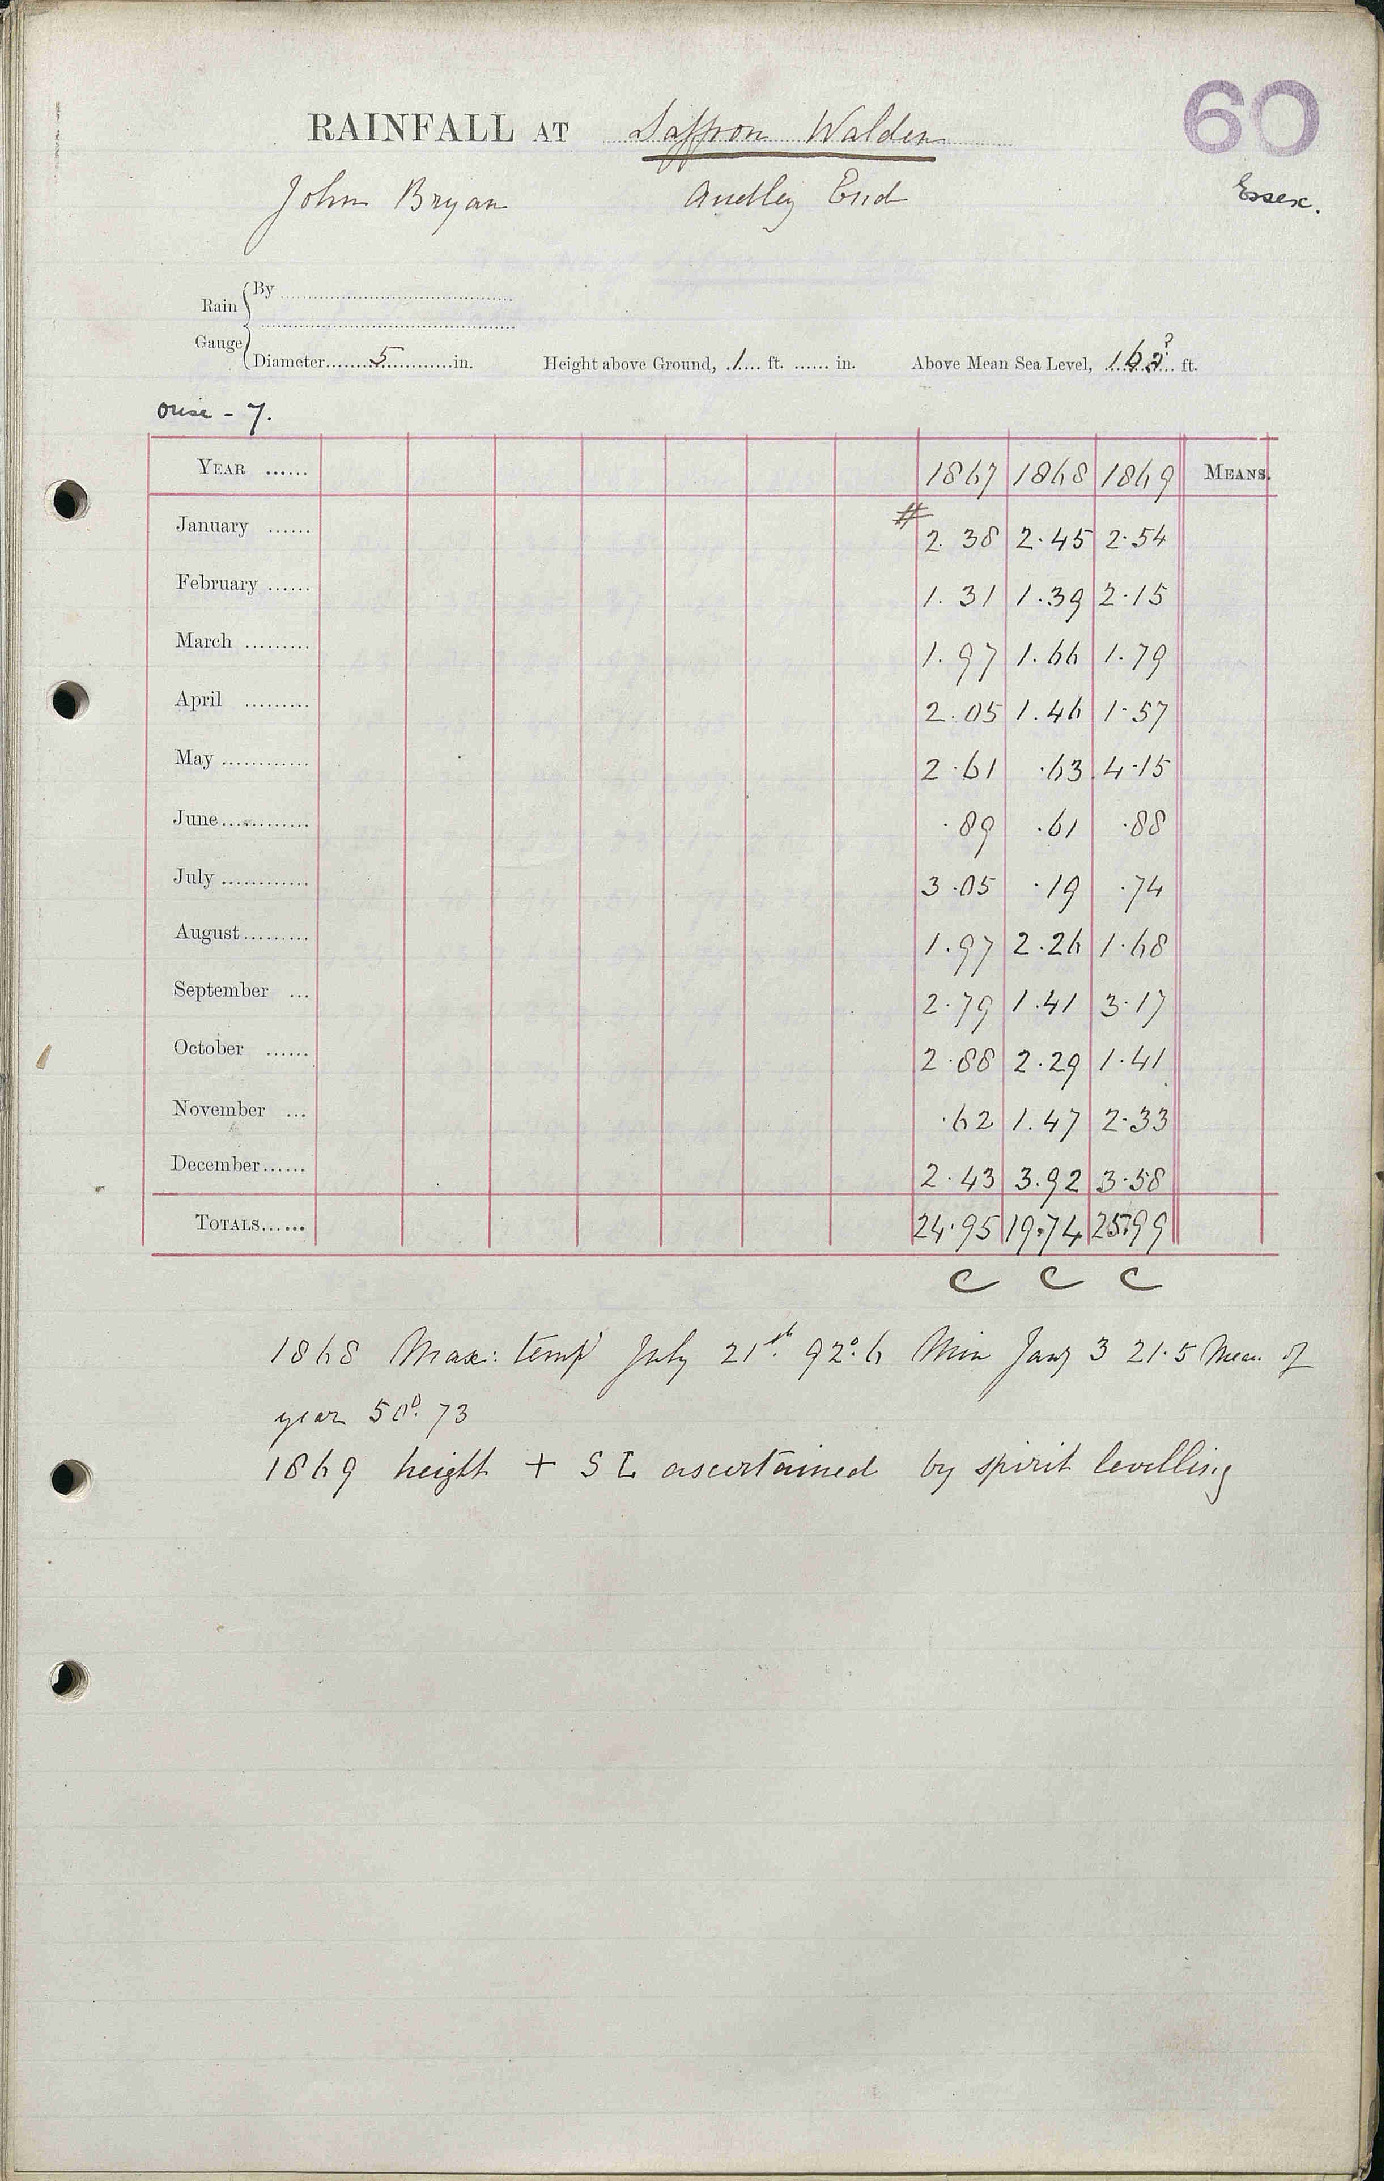 60
RAINFALL AT Saffron Walden
John Bryan Audley End Essex.
Rain Gauge
By
Diameter 5 in. Height above Ground, 1 ft. in. Above Mean Sea Level, ft.
Ouse - 7.
YEAR 1867 1868 1869 MEANS.
January # 2.38 2.45 2.54
February 1.31 1.39 2.15
March 1.97 1.66 1.79
April 2.05 1.46 1.57
May 2.61 .63 4.15
June .89 .61 .88
July 3.05 .19 .74
August 1.97 2.26 1.68
September 2.79 1.41 3.17
October 2.88 2.29 1.41
November .62 1.47 2.33
December 2.43 3.92 3.58
TOTALS 24.95 19.74 25.99
C C C
1868 Max: temp July 21st 92°.6 Min Jany 3 21.5 Mean of
year 50°.73
1869 height + SL ascertained by spirit levelling